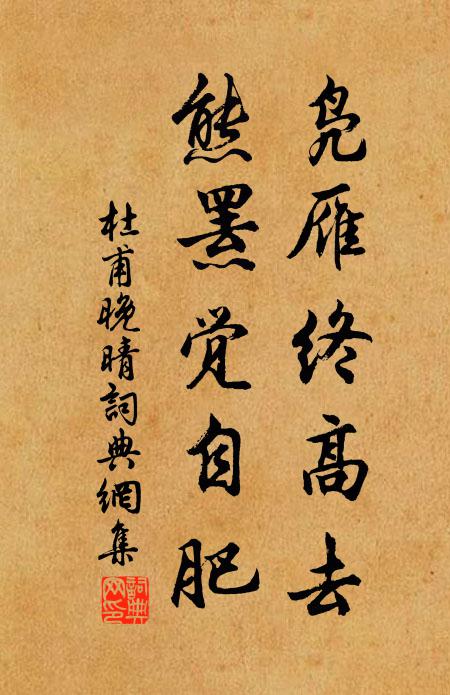 凫雁终高去
熊罴觉自肥
杜甫晚晴詞典網集
詞典网印